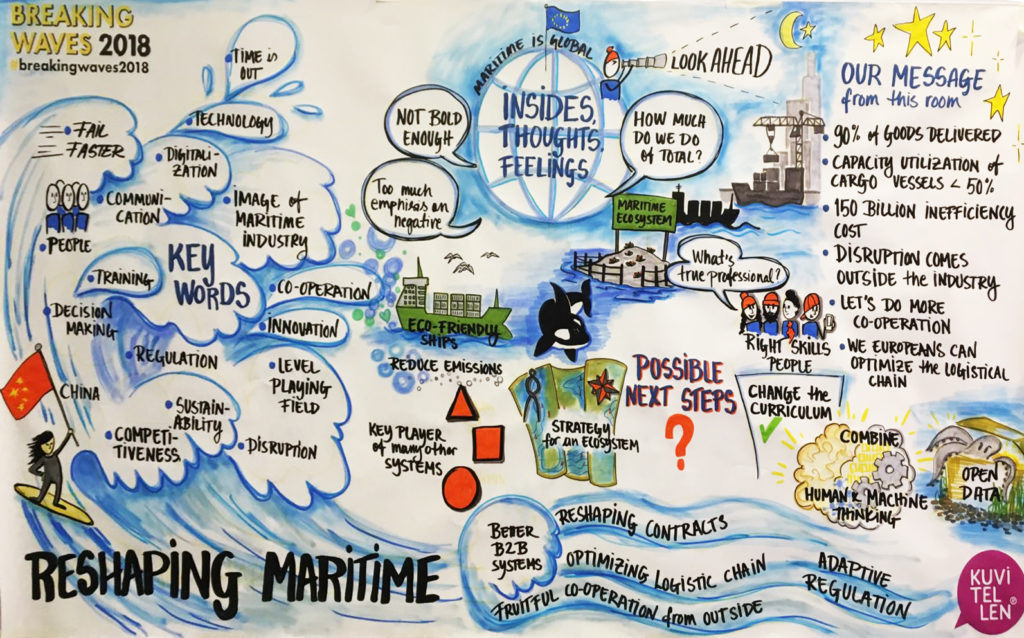 BREAKING
WAVES 2018
#breakingwaves2018
TIME is
OUT
TECHNOLOGY
FAIL
FASTER
DIGITALI-
ZATION
COMMUNI-
CATION
IMAGE of
MARITIME
INDUSTRY
PEOPLE
KEY
WORDS
TRAINING
CO-OPERATION
DECISION
MAKING
INNOVATION
REGULATION
LEVEL
PLAYING
FIELD
CHINA
SUSTAIN-
ABILITY
COMPETI-
TIVENESS
DISRUPTION
RESHAPING MARITIME
MARITIME IS GLOBAL
INSIDES,
THOUGHTS,
FEELINGS
LOOK AHEAD
NOT BOLD
ENOUGH
HOW MUCH
DO WE DO
OF TOTAL?
Too much
emphises on
negative
MARITIME
ECOSYSTEM
What's
true professional?
ECO-FRIENDLY
SHIPS
REDUCE EMISSIONS
RIGHT SKILLS
PEOPLE
KEY PLAYER
of many other
SYSTEMS
STRATEGY
for an ECOSYSTEM
POSSIBLE
NEXT STEPS
?
CHANGE the
CURRICULUM
COMBINE
HUMAN & MACHINE
THINKING
OPEN
DATA
BETTER
B2B
SYSTEMS
RESHAPING CONTRACTS
OPTIMIZING LOGISTIC CHAIN
FRUITFUL CO-OPERATION from OUTSIDE
ADAPTIVE
REGULATION
OUR MESSAGE
from this room
• 90% of GOODS DELIVERED
• CAPACITY UTILIZATION of
CARGO VESSELS < 50%
• 150 BILLION INEFFICIENCY
COST
• DISRUPTION COMES
OUTSIDE the INDUSTRY
• LET'S DO MORE
CO-OPERATION
• WE EUROPEANS CAN
OPTIMIZE the LOGISTICAL
CHAIN
KUVI
TEL
LEN®